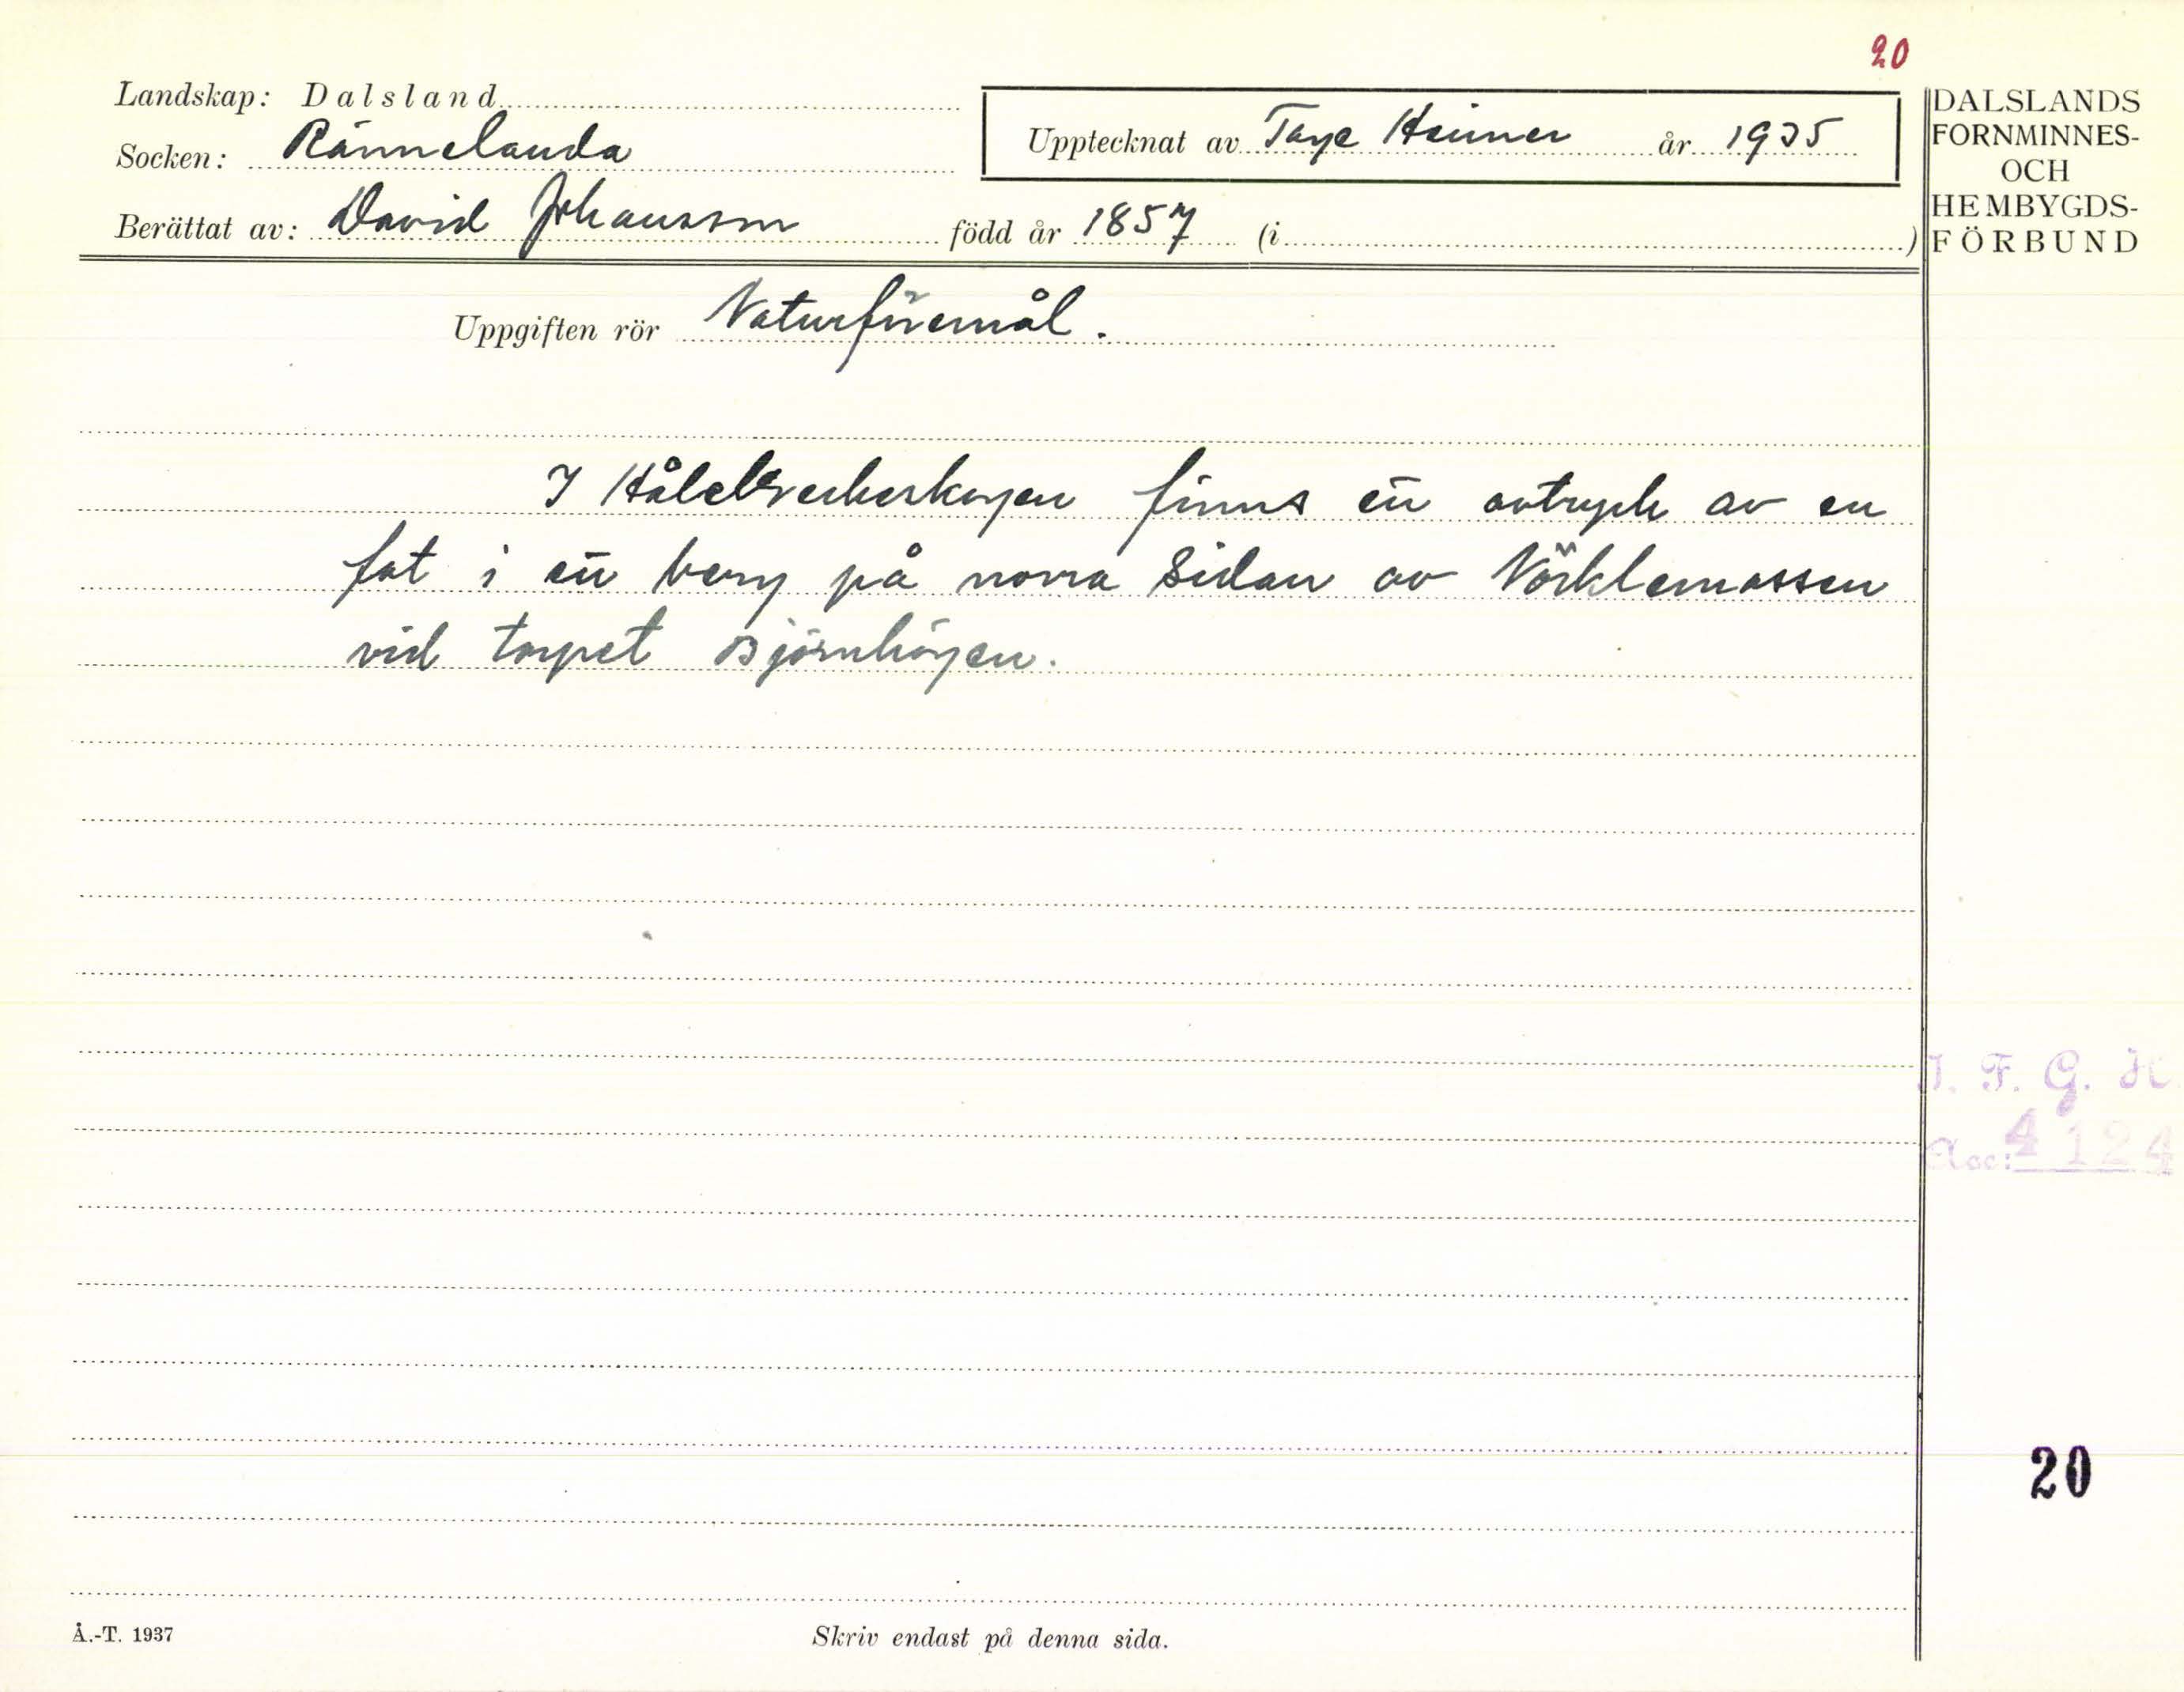 20
Landskap: Dalsland
Socken: Rännelanda
Upptecknat av Tage Heimer år 1935
Berättat av: David Johansson född år 1857 (i )
DALSLANDS
FORNMINNES-
OCH
HEMBYGDS-
FÖRBUND
Uppgiften rör Naturföremål.
I finns ett avtryck av en
fot i ett berg på norra sidan av
vid torpet Björnhögen.
I. F. G. H
Acc: 4124
20
Å.-T. 1937
Skriv endast på denna sida.